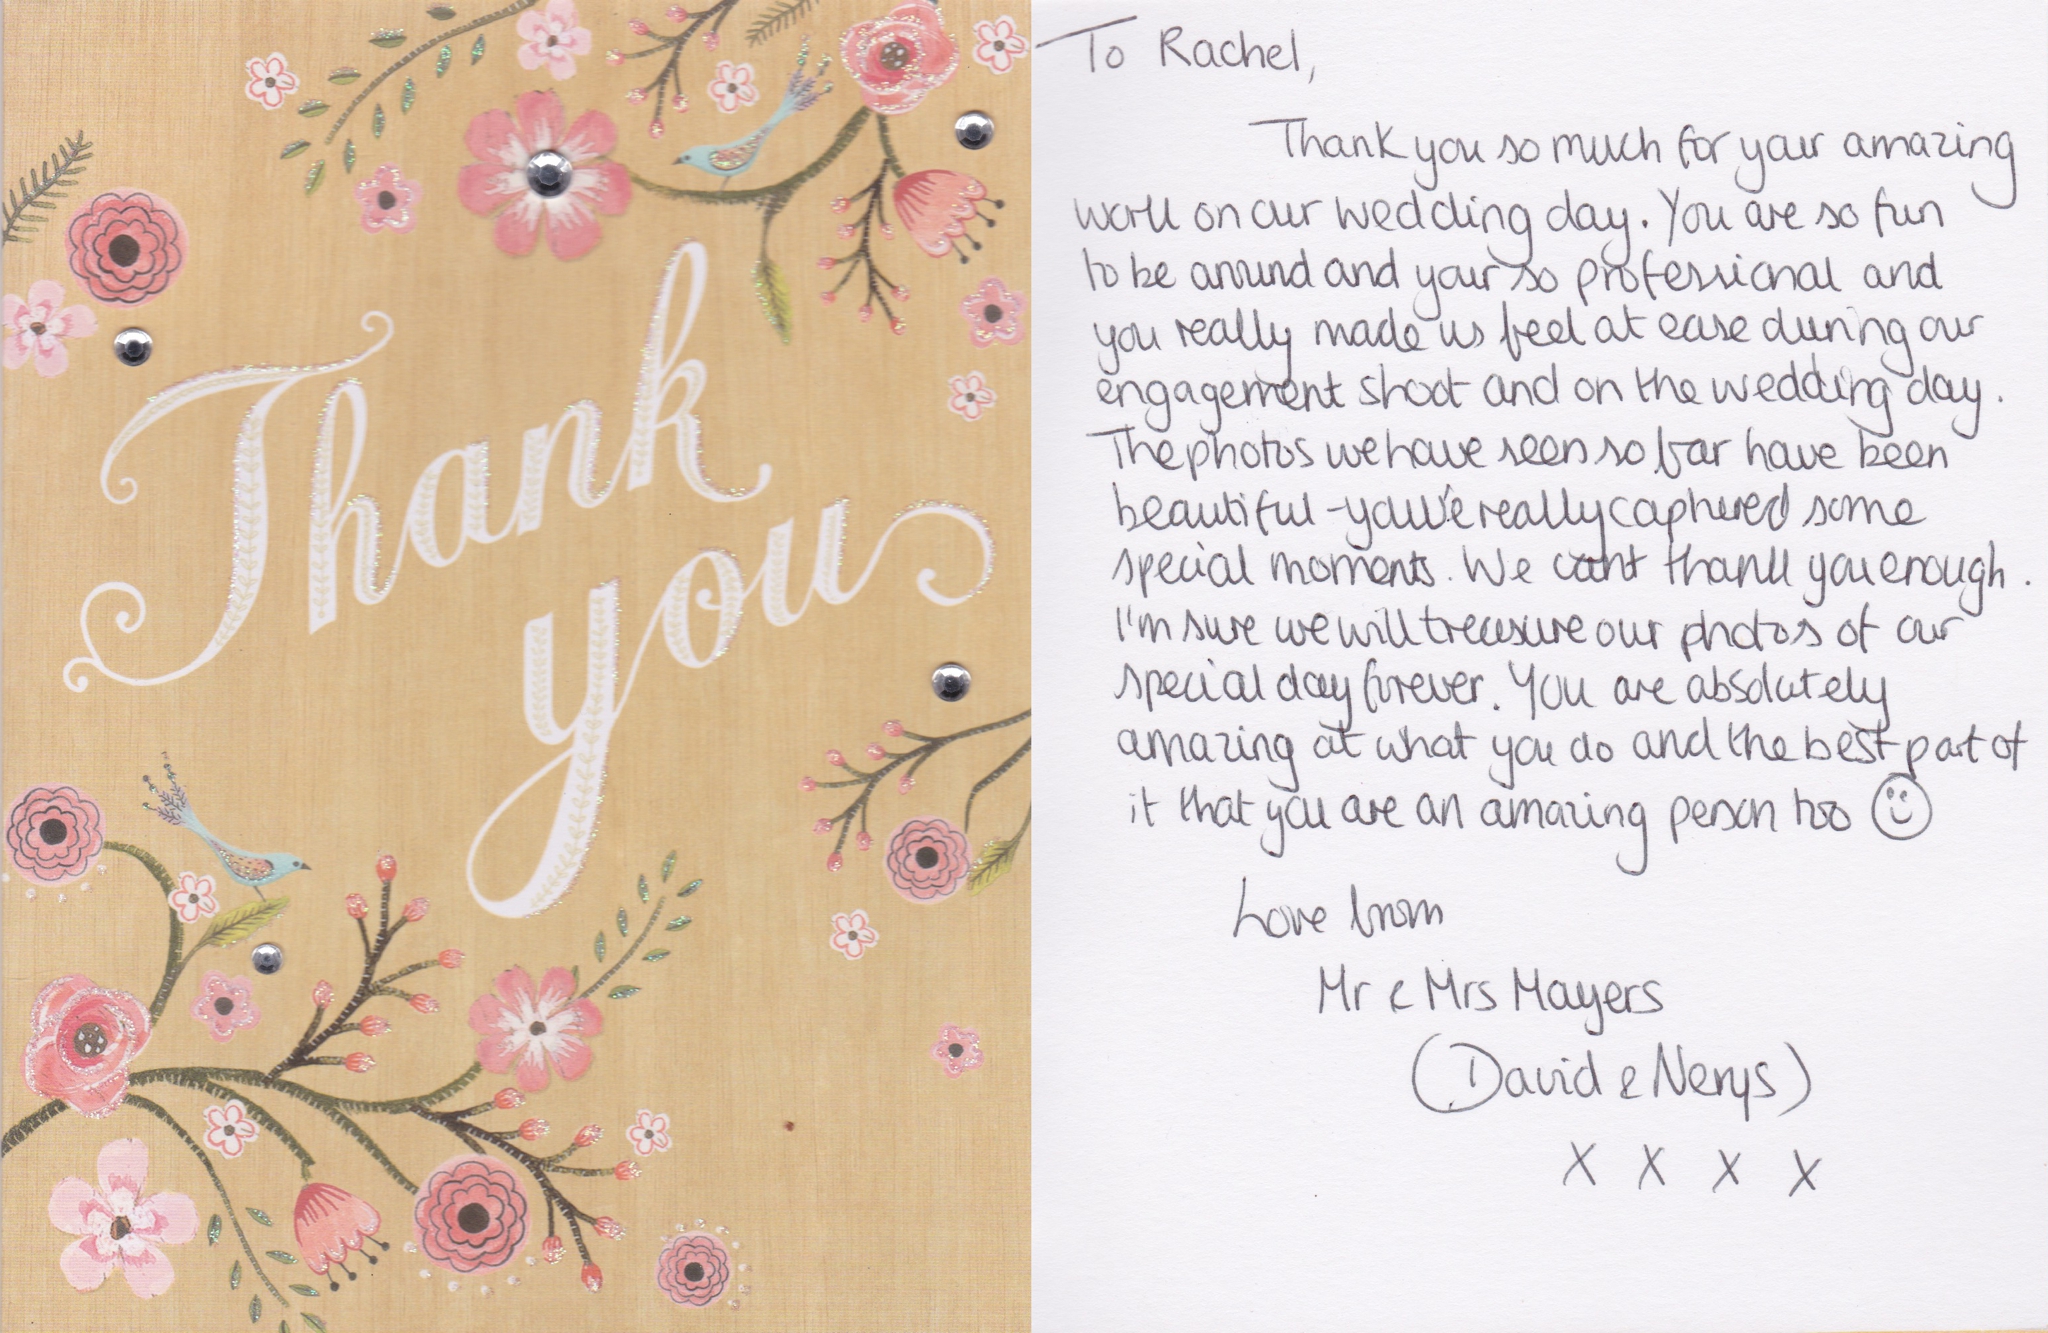 Thank
you
To Rachel,
Thank you so much for your amazing
work on our wedding day. You are so fun
to be around and your so professional and
you really made us feel at ease during our
engagement shoot and on the wedding day.
The photos we have seen so far have been
beautiful - you've really captured some
special moments. We cant thank you enough.
I'm sure we will treasure our photos of our
special day forever. You are absolutely
amazing at what you do and the best part of
it that you are an amazing person too
Love from
Mr & Mrs Mayers
(David & Nerys)
X X X X